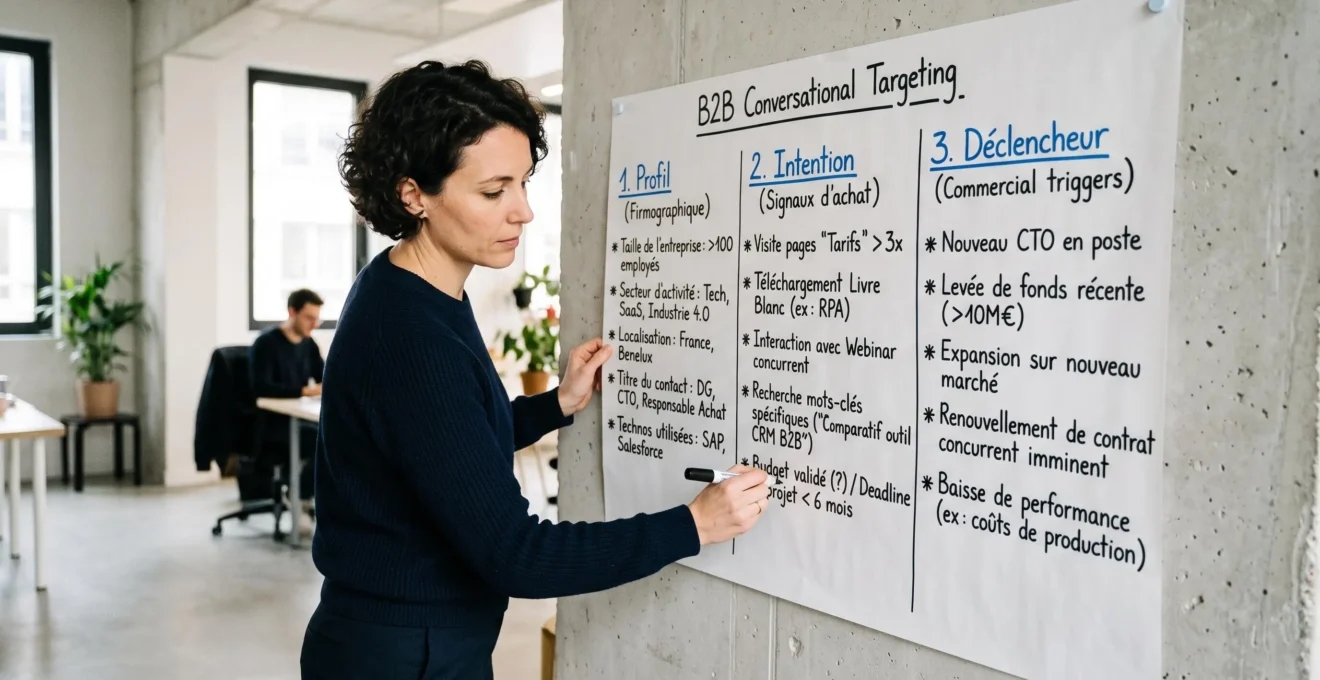 B2B Conversational Targeting
1. Profil
(Firmographique)
* Taille de l'entreprise : >100
employés
* Secteur d'activité : Tech,
SaaS, Industrie 4.0
* Localisation : France,
Benelux
* Titre du contact : DG,
CTO, Responsable Achat
* Technos utilisées : SAP,
Salesforce
2. Intention
(Signaux d'achat)
* Visite pages "Tarifs" > 3x
* Téléchargement Livre
Blanc (ex : RPA)
* Interaction avec Webinar
concurrent
* Recherche mots-clés
spécifiques ("Comparatif outil
CRM B2B")
* Budget validé (?) / Deadline
projet < 6 mois
3. Déclencheur
(Commercial triggers)
* Nouveau CTO en poste
* Levée de fonds récente
(>10M€)
* Expansion sur nouveau
marché
* Renouvellement de contrat
concurrent imminent
* Baisse de performance
(ex : coûts de production)